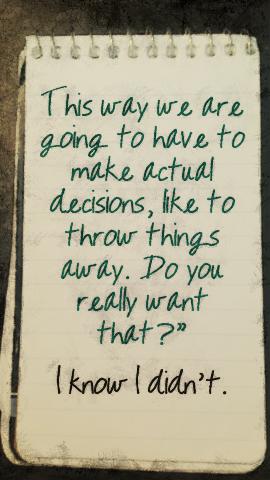 This way we are
going to have to
make actual
decisions, like to
throw things
away. Do you
really want
that?"
I know I didn't.